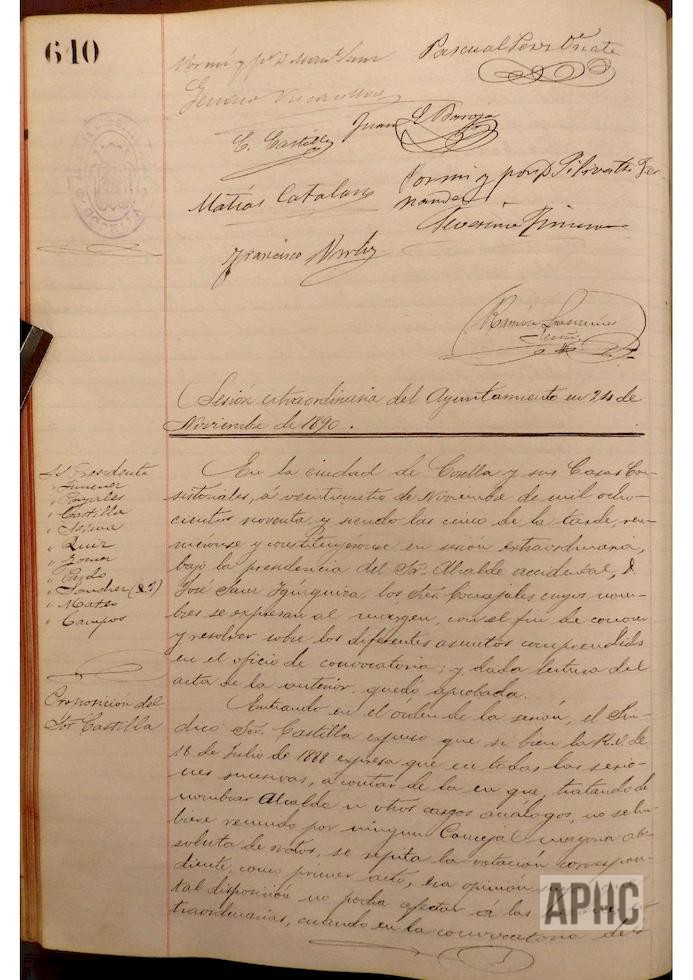 640
Pascual Perez Oñate
Por mí y pr. D. Man.l Sanz
Genaro
C. Castilla
Juan L. Baroja
Matías Catalan
Por mi y por D. Silvestre Fer-
nandez
Severino
Francisco
Ramón
Sesión extraordinaria del Ayuntamiento en 24 de
Noviembre de 1890.
Sr. Presidente
" Gimenez
" Castilla
" Ruiz
" Gomez
" Pardo
" Sanchez
" Mateo
" Campos
En la ciudad de Corella y sus Casas Con-
sistoriales, á veinticuatro de Noviembre de mil ocho-
cientos noventa, y siendo las cinco de la tarde, reu-
niéronse y constituyéronse en sesión extraordinaria,
bajo la presidencia del Sr. Alcalde accidental, D.
José Sanz, los Sres. Concejales cuyos nom-
bres se expresan al margen, con el fin de conocer
y resolver sobre los diferentes asuntos comprendidos
en el oficio de convocatoria; y dada lectura del
acta de la anterior, quedó aprobada.
Proposición del
Sor. Castilla
Entrando en el órden de la sesión, el Sín-
dico Sor. Castilla expuso que si bien la R.O. de
16 de Julio de 1888 expresa que en todas las sesio-
nes sucesivas, á contar de la en que, tratando de
nombrar Alcalde u otros cargos análogos, no se hu-
biere reunido por ningun Concejal mayoria ab-
soluta de votos, se repita la votación correspon-
diente, como primer acto, era opinión
tal disposición no podia afectar á las
traordinarias, cuando en la convocatoria
APHC